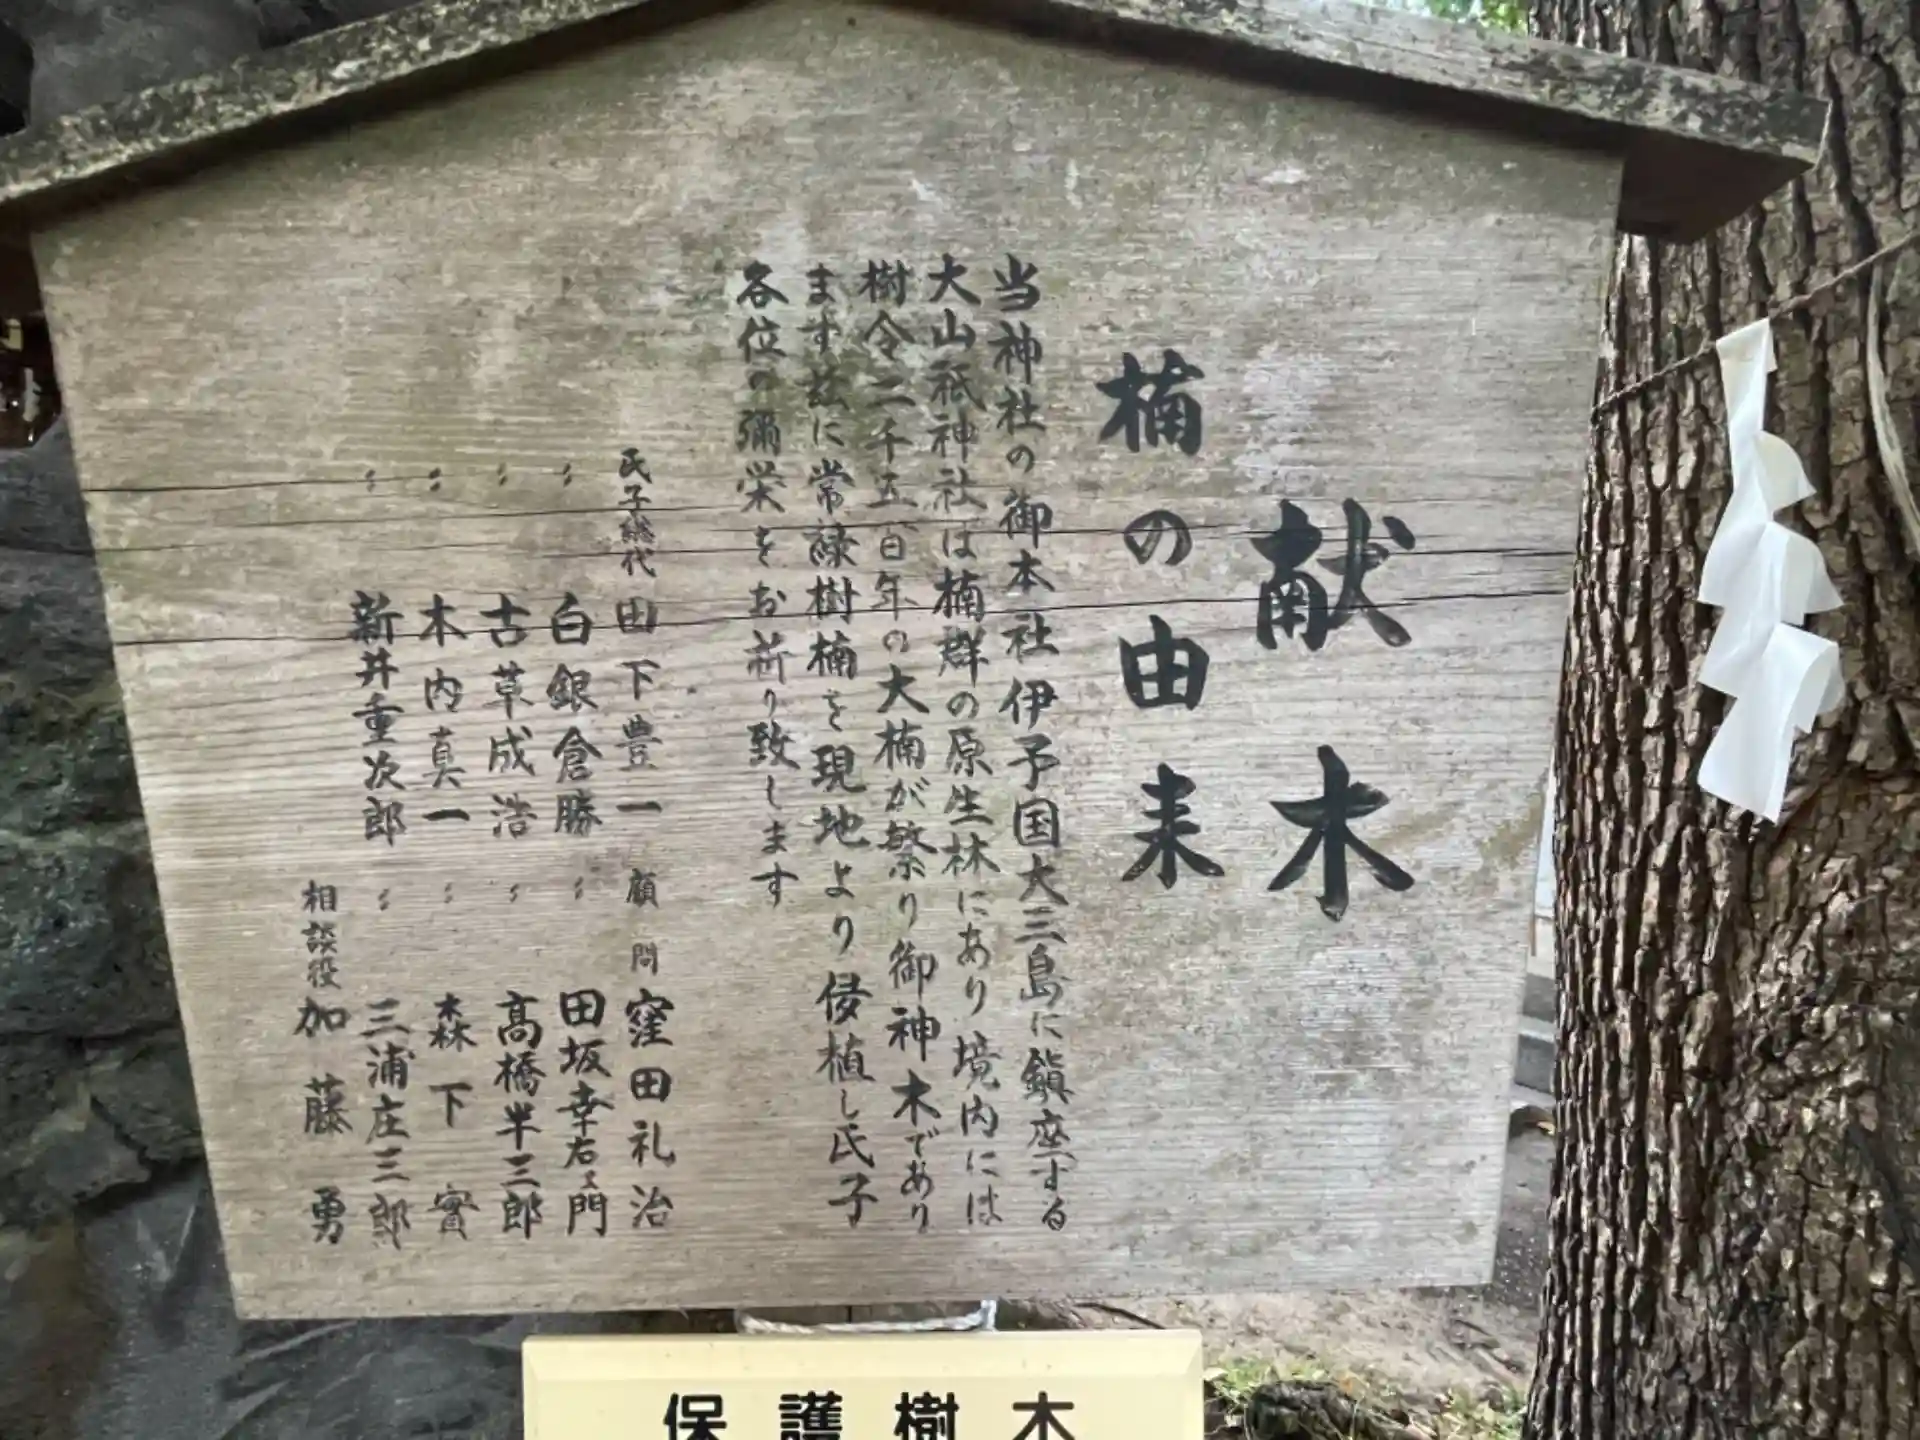 献木
楠の由来
当神社の御本社伊予国大三島に鎮座する
大山祇神社は楠群の原生林にあり境内には
樹令二千五百年の大楠が繁り御神木であり
ます玆に常緑樹楠を現地より倭植し氏子
各位の彌栄をお祈り致します
氏子総代 田下豊一 顧問 窪田礼治
〃 白銀倉勝 〃 田坂幸右ヱ門
〃 古草成浩 〃 髙橋半三郎
〃 木内真一 〃 森下實
〃 新井重次郎 〃 三浦庄三郎
相談役 加藤勇
保護樹木